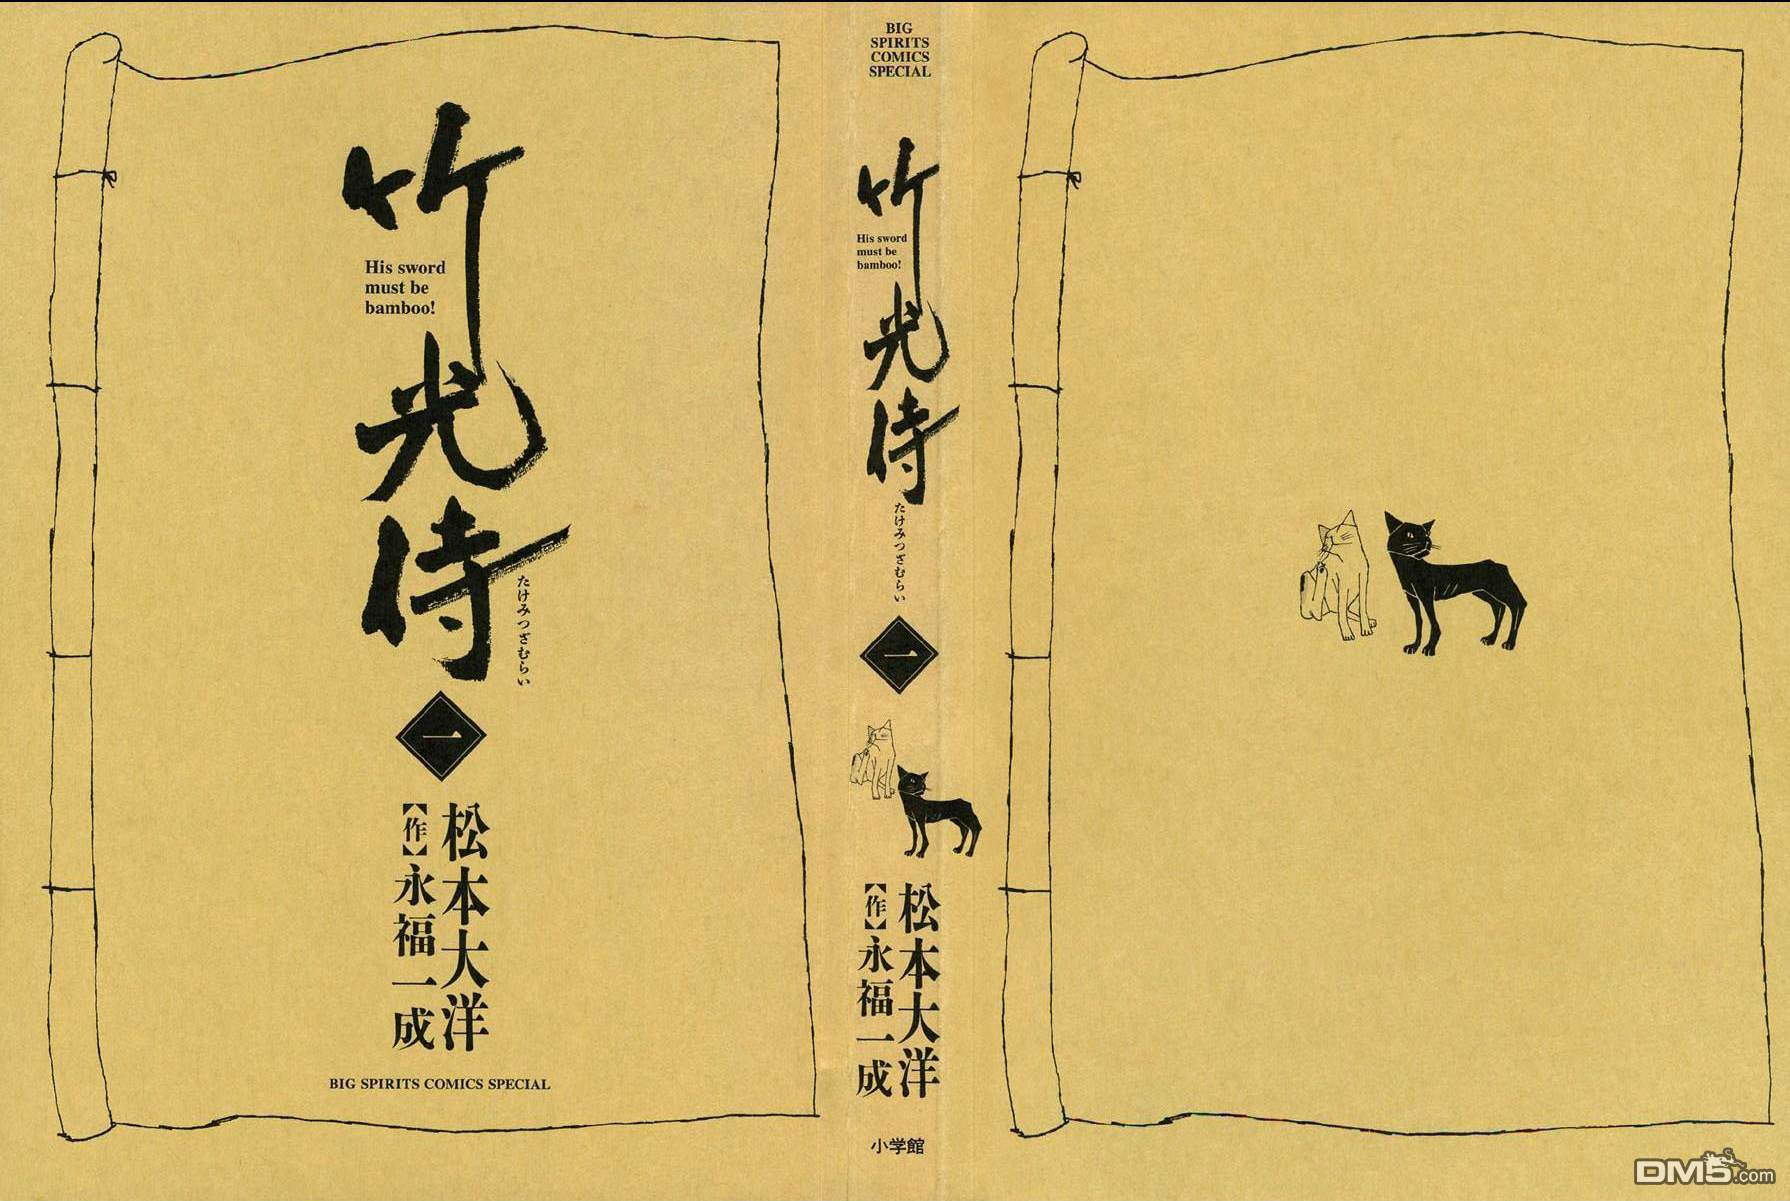 竹光侍
His sword
must be
bamboo!
たけみつざむらい
一
松本大洋
【作】永福一成
BIG SPIRITS COMICS SPECIAL
BIG
SPIRITS
COMICS
SPECIAL
竹光侍
His sword
must be
bamboo!
たけみつざむらい
一
松本大洋
【作】永福一成
小学館
DM5.com